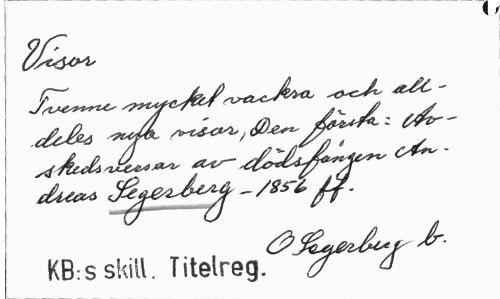 Visor
Tvenne mycket vackra och all-
deles nya visor, Den första: Av-
skedsversar av dödsfången An-
dreas Segerberg - 1856 ff.
O Segerberg b.
KB:s skill. Titelreg.